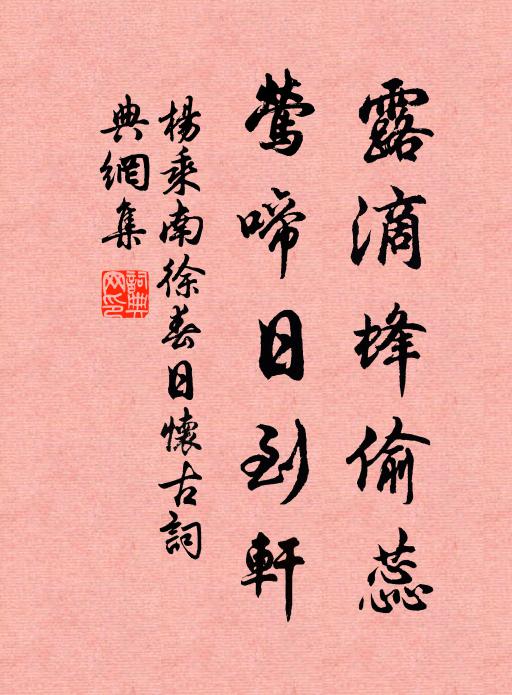 露滴蜂偷蕊
鶯啼日到軒
楊乘南徐春日懷古詞
典網集
詞典網印